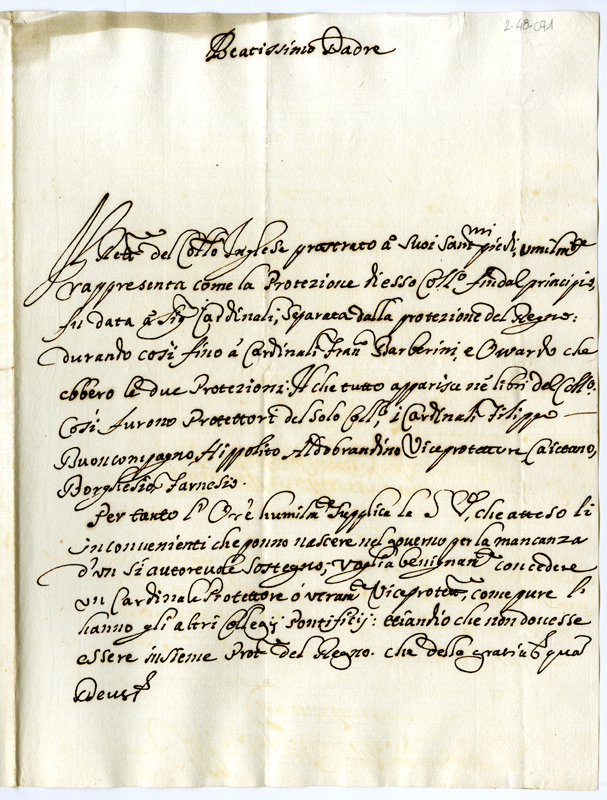 2-48-071
Beatissimo Padre
Il Rett.re del Coll.o Inglese prostrato a' suoi Sant.mi piedi, umilm.te
rappresenta come la Protezione di esso Coll.o fin dal principio,
fu data a' Sig.ri Cardinali, separata dalla protezione del Regno:
durando così fino a' Cardinali Fran.co Barberini, e Owardo che
ebbero le due Protezioni: Il che tutto apparisce ne' libri del Coll.o.
Così furono Protettori del solo Coll.o, i Cardinali Filippo
Buoncompagno, Hippolito Aldobrandino Viceprotettore Caietano,
Borghesio, Farnesio.
Per tanto l'Or.e humilm.te supplica le S. V., che atteso li
inconvenienti che ponno nascere nel governo per la mancanza
d'un si autorevole sostegno, voglia benignam.te concedere
un Cardinale Protettore ò veram.te Viceprotett.re, come pure l'
hanno gli altri Collegij Pontificij: etiandio che non dovesse
essere insieme Prot.re del Regno. che della gratia
&c. Quam Deus &c.